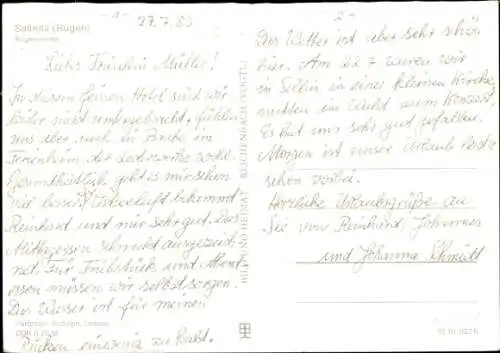 -1-
27.7.83
Saßnitz (Rügen)
Rügen-Hotel
Liebes Fräulein Müller!
In diesem feinen Hotel sind wir
leider nicht untergebracht, fühlen
uns aber auch in Binz im
Ferienheim der wohl.
Gesundheitlich geht es mir schon
viel besser. Ostseeluft bekommt
Reinhard und mir sehr gut. Das
Mittagessen schmeckt ausgezeich
net. Für Frühstück und Abend
essen müssen wir selbst sorgen.
Das Wasser ist für meinen
Rücken ein wenig zu kalt.
BILD UND HEIMAT REICHENBACH (VOGTL)
2-
Das Wetter ist aber sehr schön
hier. Am 22.7 waren wir
in Sellin in einer kleinen Kirche
mitten im Wald zum Konzert.
Es hat uns sehr gut gefallen.
Morgen ist unser Urlaub
schon vorbei.
Herzliche Urlaubsgrüße an
Sie von Reinhard, Johannes
und Johanna Schmidt